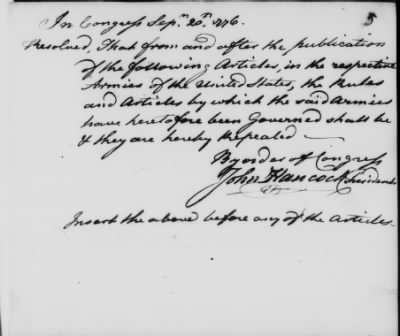 In Congress Sepr. 20th. 1776.
5
Resolved, That from and after the publication
of the following Articles, in the respective
Armies of the United States, the Rules
and Articles by which the said Armies
have heretofore been Governed shall be
& they are hereby Repealed —
By order of Congress
John Hancock President
Insert the above before any of the Articles.